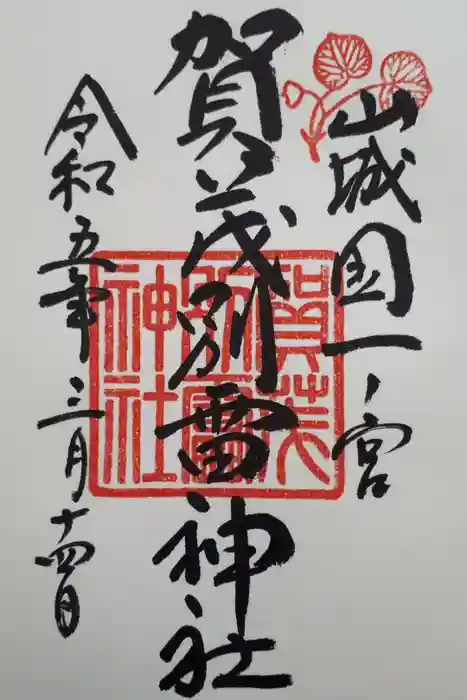 山城国一ノ宮
賀茂別雷神社
令和五年三月十四日
賀茂
別雷
神社